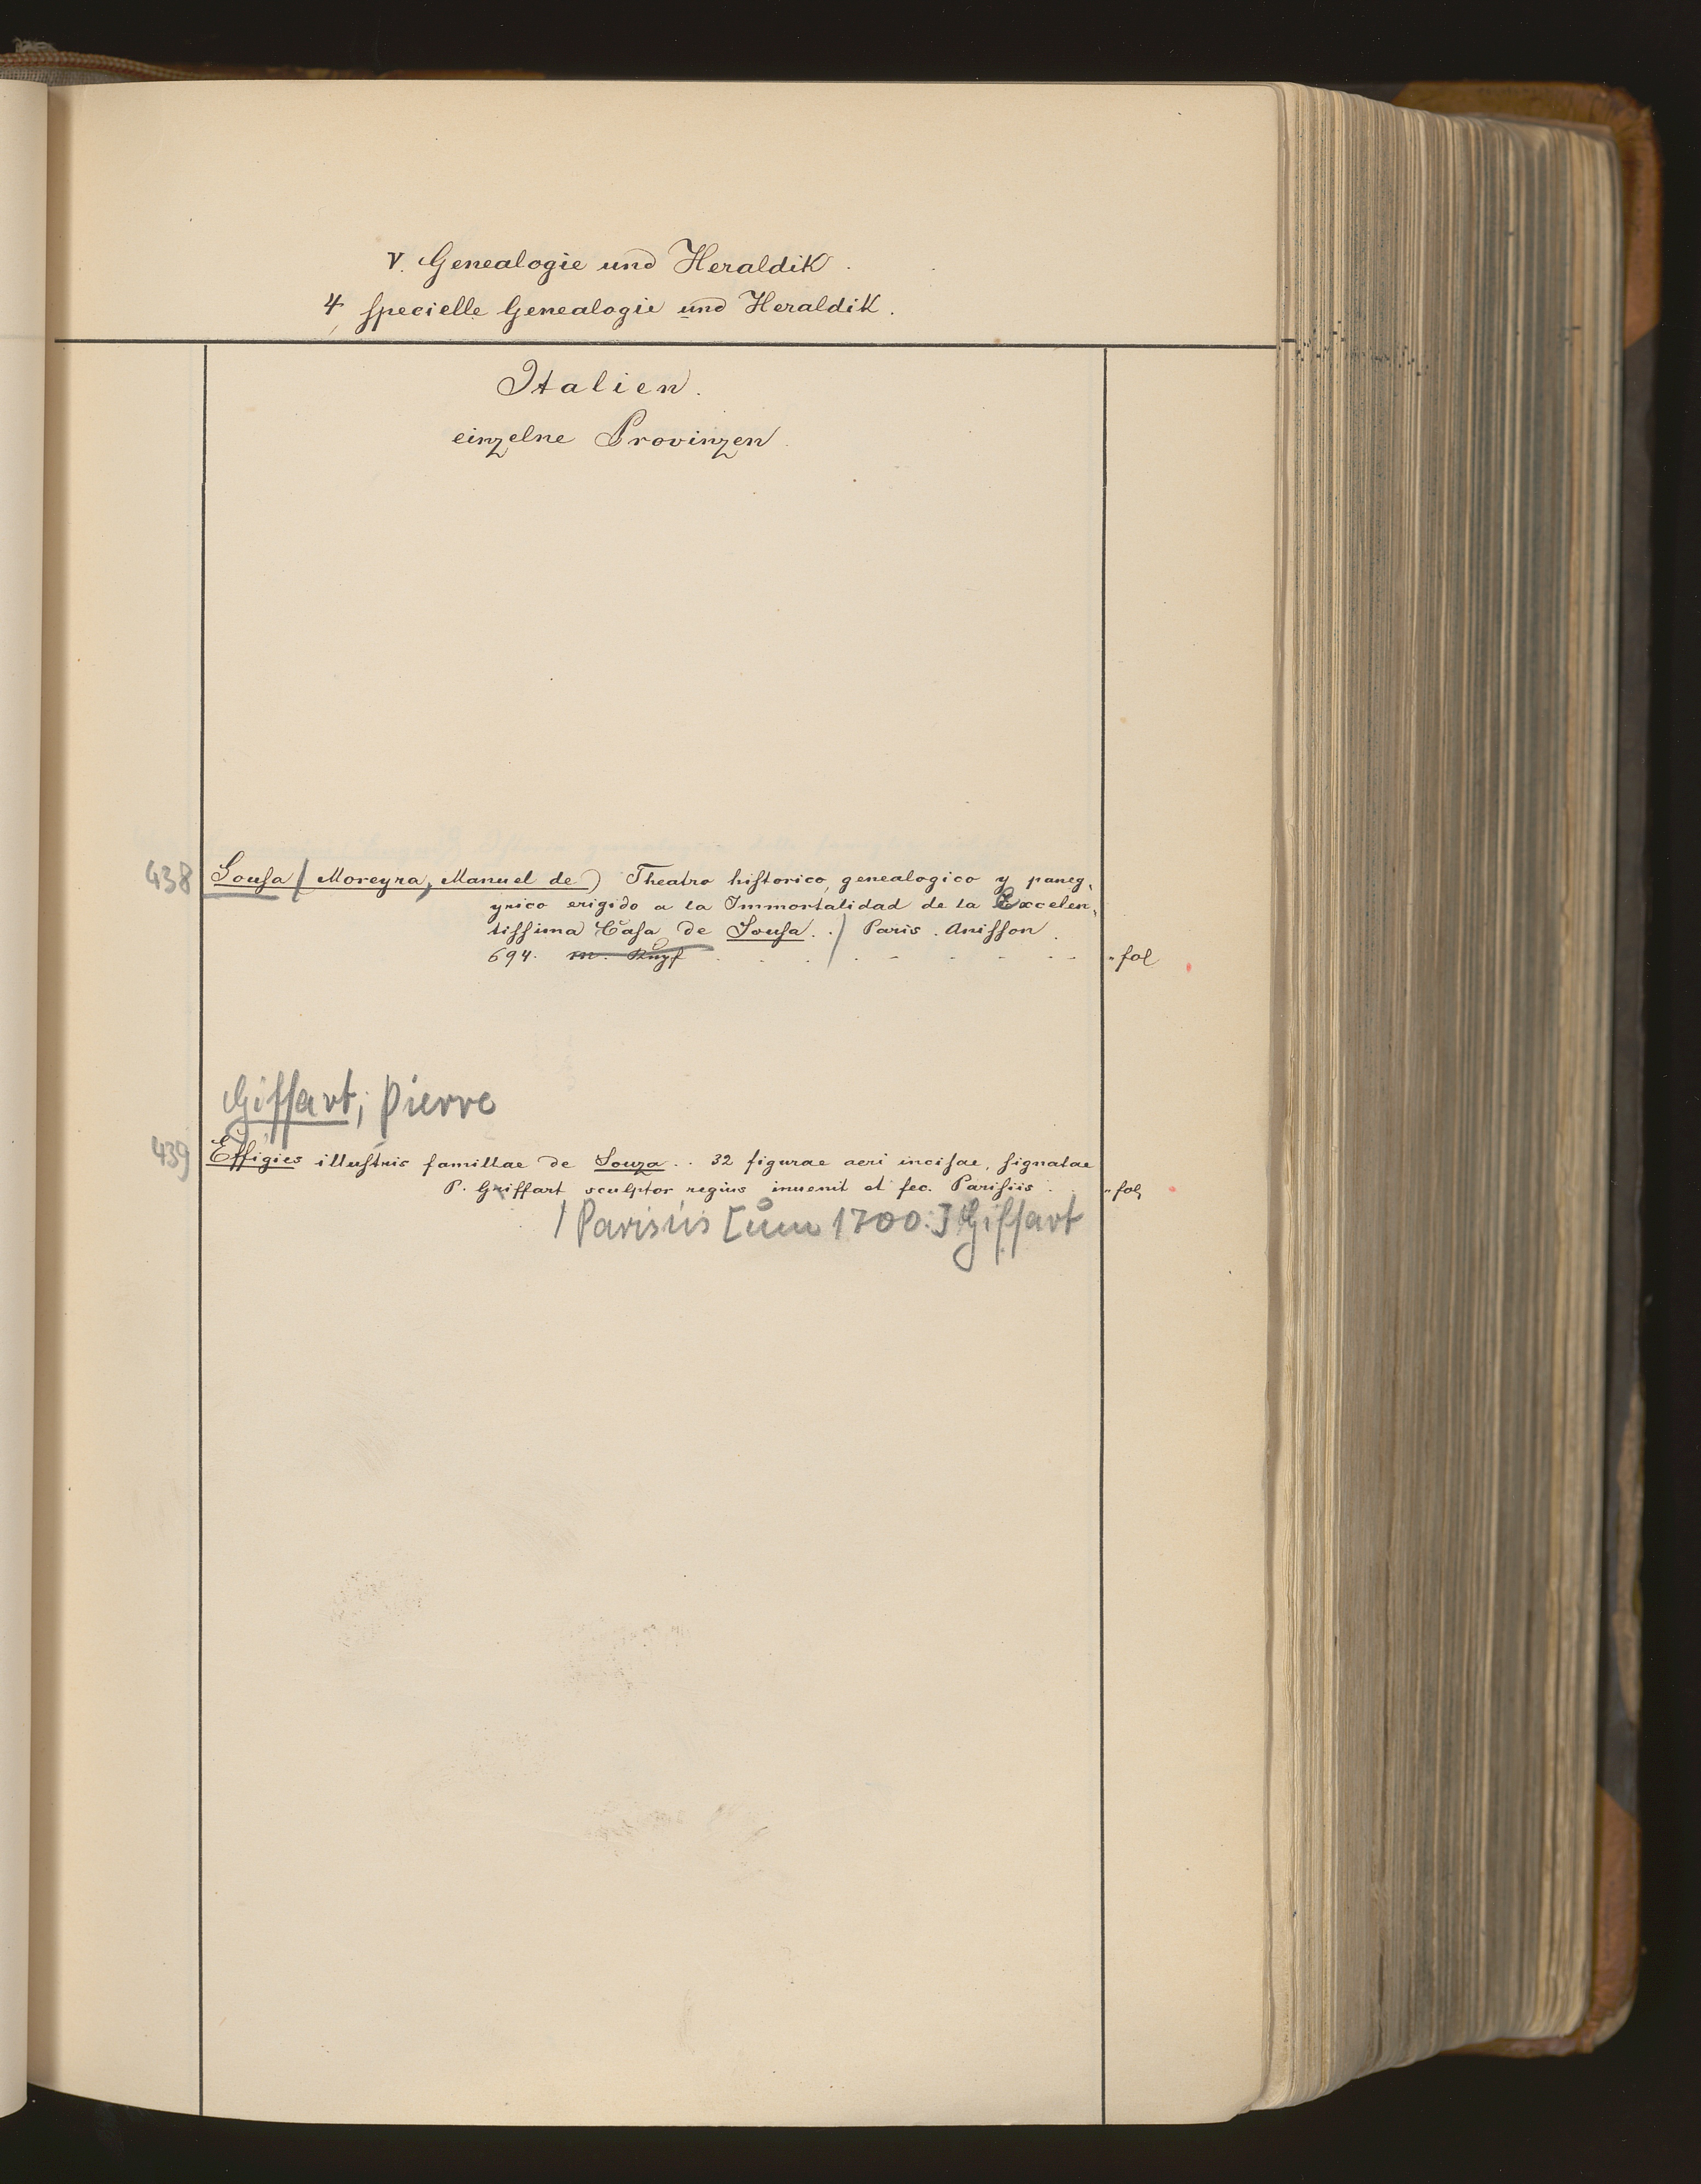 V. Genealogie und Heraldik.
4, specielle Genealogie und Heraldik.
Italien.
einzelne Provinzen.
438 Sousa / Moreyra, Manuel de) Theatro historico, genealogico y paneg-
yrico erigido a la Immortalidad de la Excelen-
tissima Casa de Sousa. . / Paris. Anisson.
694. m. Kupf fol
Giffart, Pierre
439 Effigies illustris famillae de Souza . . 32 figurae aeri incisae, signatae
P. Griffart sculptor regius invenit et fec. Parisiis . . fol
/ Parisiis [um 1700.] Giffart